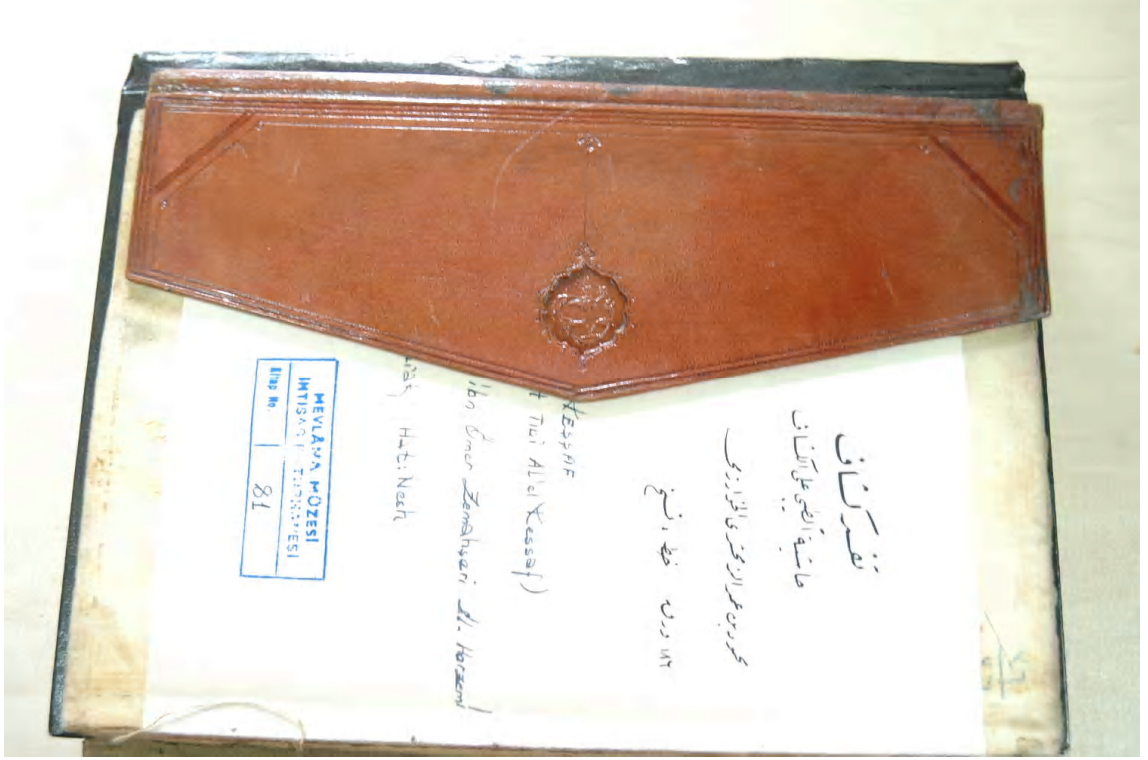 تفسير كشاف
حاشية الطيبى على الكشاف
محمود بن عمر الزمخشرى الخوارزمى
ورق خط : نسخ
KEŞŞAF
Tibî Ale'l Kessaf)
ibn Ömer Zemahşeri el- Harzemî
Hat: Nesh
MEVLÂNA MÜZESİ
İHTİSAS KÜTÜPHANESİ
Kitap No. 81